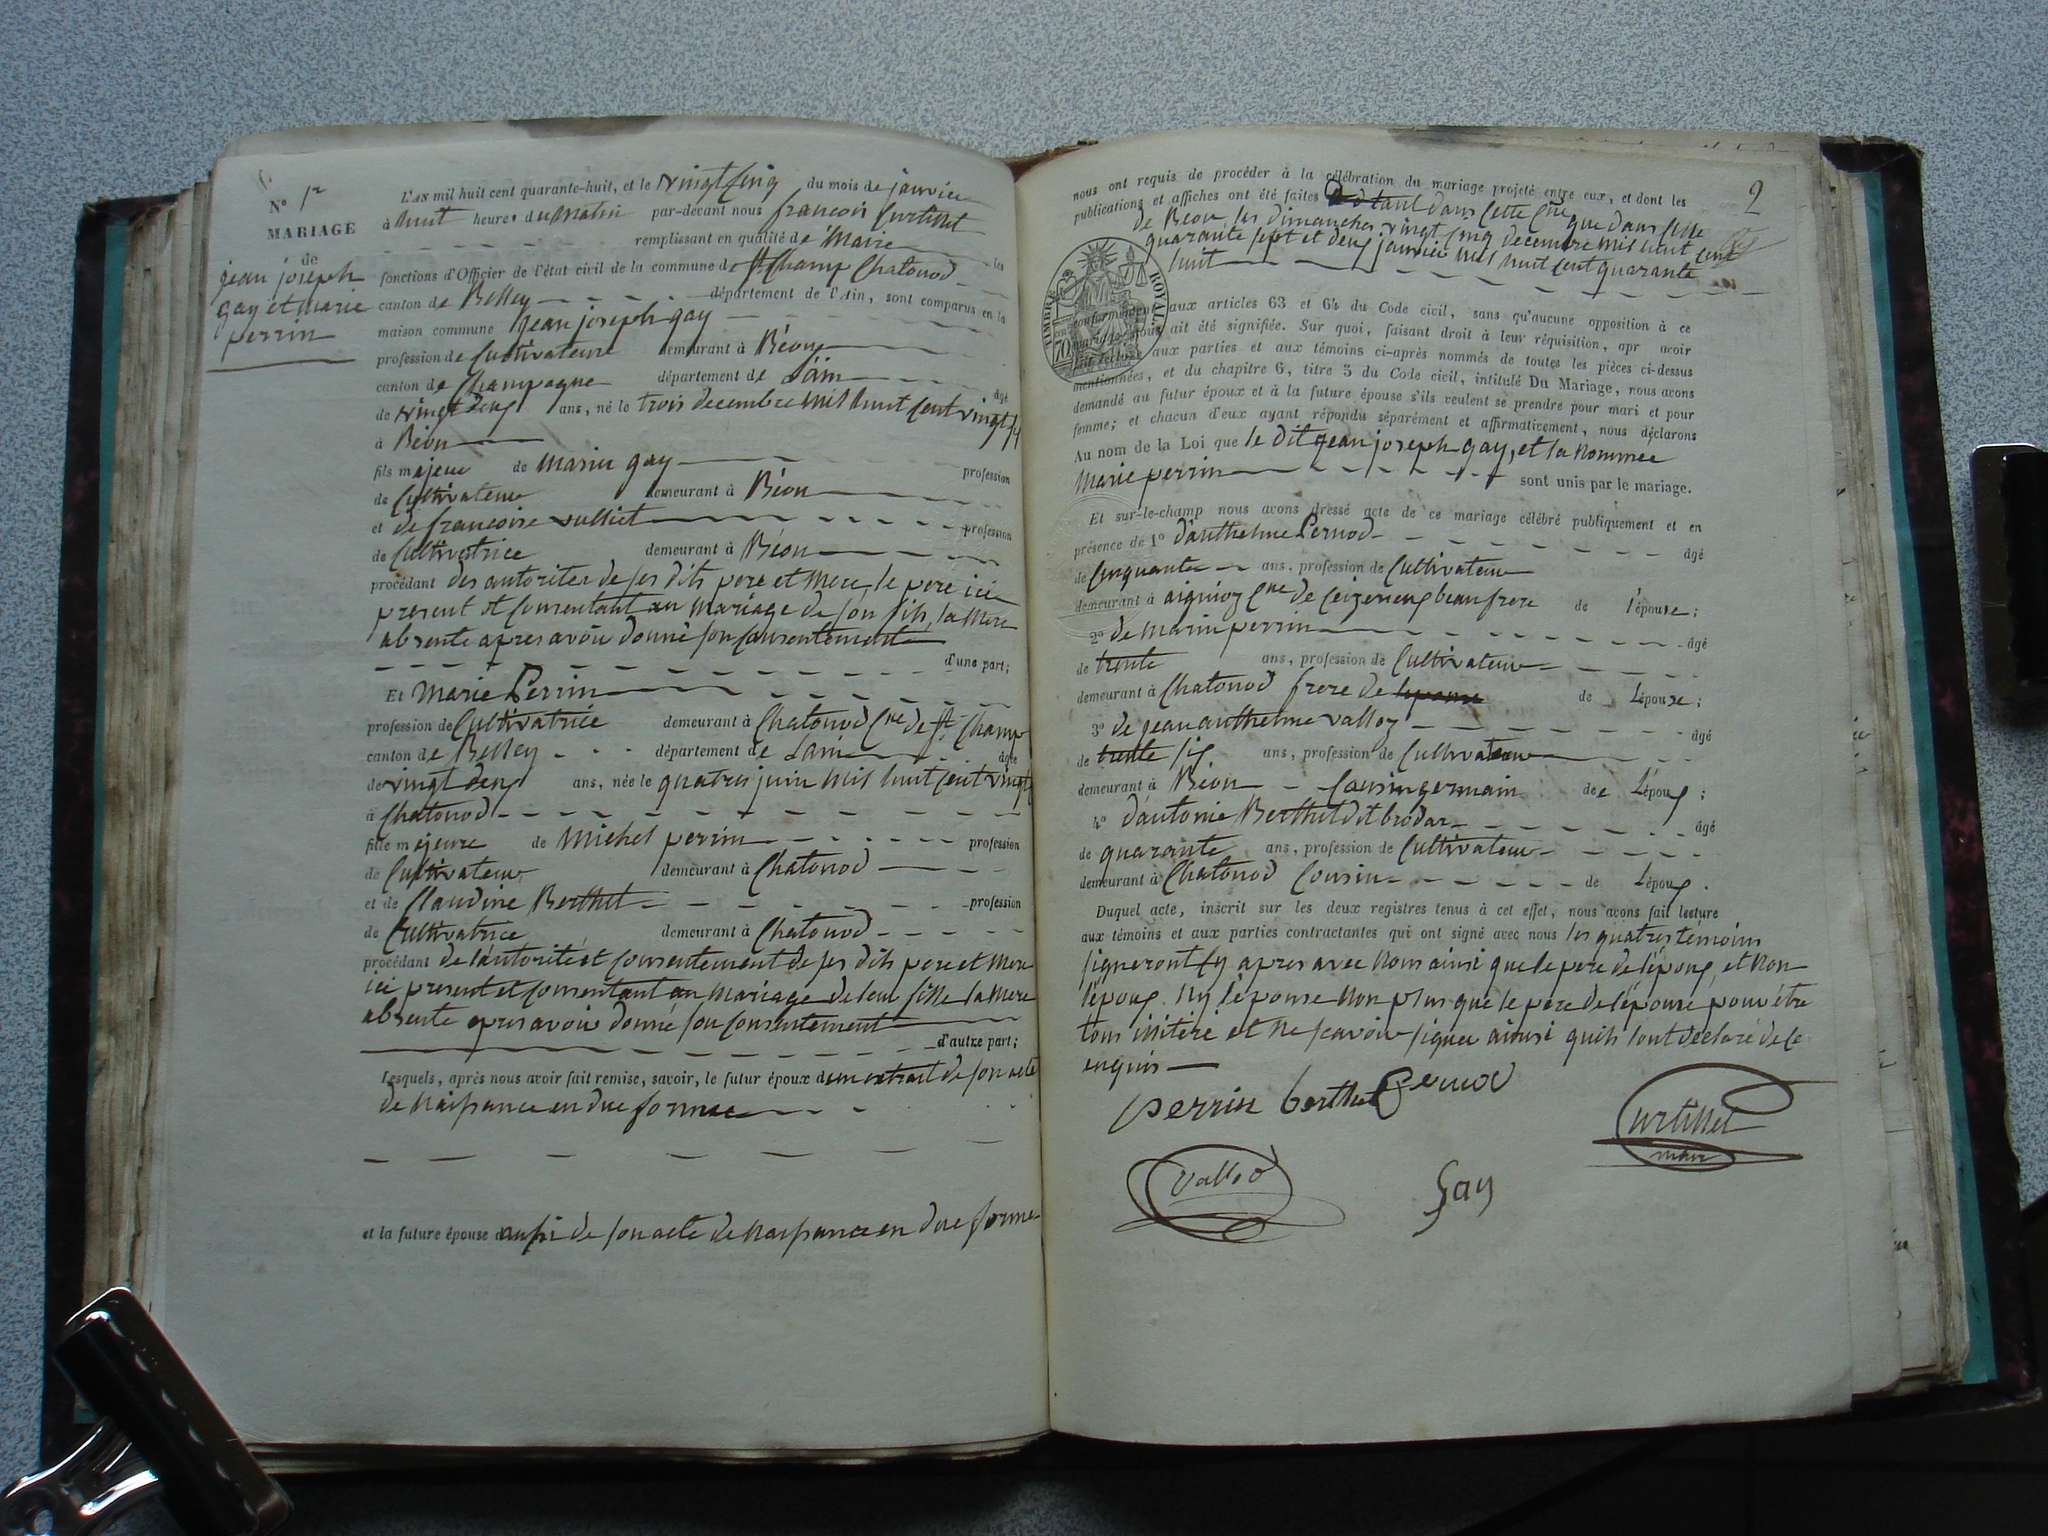 N° 1er
MARIAGE
de
jean joseph
gay et marie
perrin
L'AN mil huit cent quarante-huit, et le vingt cinq du mois de janvier
à huit heures du matin par-devant nous francois Curtillet
remplissant en qualité de Maire les
fonctions d'Officier de l'état civil de la commune de St Champ Chatonod
canton de Belley département de l'Ain, sont comparus en la
maison commune jean joseph gay
profession de Cultivateur demeurant à Béon
canton de Champagne département de L'ain âgé
de vingt deux ans, né le trois decembre mil huit cent vingt
à Béon
fils majeur de Marin gay profession
de Cultivateur demeurant à Béon
et de francoise vulliet profession
de Cultivatrice demeurant à Béon
procédant des autorites de ses dits pere et Mere le pere icie
present et Consentant au Mariage de son fils, la Mere
absente apres avoir donné son Consentement
d'une part;
Et Marie Perrin
profession de Cultivatrice demeurant à Chatonod Cne de St Champ
canton de Belley département de Lain âgée
de vingt deux ans, née le quatres juin Mil huit Cent vingt
à Chatonod
fille mejeure de Michel perrin profession
de Cultivateur demeurant à Chatonod
et de Claudine Berthet profession
de Cultivatrice demeurant à Chatonod
procédant de l'autorité et Consentement de ses dits pere et Mere
ici present et Consentant au Mariage de leur fille la Mere
absente apres avoir donné son Consentement
d'autre part;
Lesquels, après nous avoir fait remise, savoir, le futur époux d'un extrait de son acte
de Naissance en due forme
et la future épouse aussi de son acte de Naissance en due forme
2
nous ont requis de procéder à la célébration du mariage projeté entre eux, et dont les
publications et affiches ont été faites tant dans Cette Cne que dans Celle
de Béon les dimanches vingt Cinq decembre Mil huit Cent
quarante sept et deux janvier Mil huit Cent quarante
huit
TIMBRE ROYAL
70
conformément aux articles 63 et 64 du Code civil, sans qu'aucune opposition à ce
mariage nous ait été signifiée. Sur quoi, faisant droit à leur réquisition, apr avoir
fait lecture aux parties et aux témoins ci-après nommés de toutes les pièces ci-dessus
mentionnées, et du chapitre 6, titre 5 du Code civil, intitulé Du Mariage, nous avons
demandé au futur époux et à la future épouse s'ils veulent se prendre pour mari et pour
femme; et chacun d'eux ayant répondu séparément et affirmativement, nous déclarons
Au nom de la Loi que le dit jean joseph gay, et la Nommée
Marie perrin sont unis par le mariage.
Et sur-le-champ nous avons dressé acte de ce mariage célébré publiquement et en
présence de 1° d'anthelme Pernod âgé
de Cinquante ans, profession de Cultivateur
demeurant à aignioz Cne de Ceizerieux beau frere de l'épouse;
2° de Marin perrin âgé
de trente ans, profession de Cultivateur
demeurant à Chatonod frere de de Lépouse;
3° de jean anthelme valloz âgé
de trente six ans, profession de Cultivateur
demeurant à Béon Cousin germain de Lépoux;
4° d'antoine Berthet dit brodar âgé
de quarante ans, profession de Cultivateur
demeurant à Chatonod Cousin de Lépoux.
Duquel acte, inscrit sur les deux registres tenus à cet effet, nous avons fait lecture
aux témoins et aux parties contractantes qui ont signé avec nous les quatres témoins
signeront Cy apres avec Nous ainsi que le pere de l'époux, et Non
l'époux. Ny l'épouse Non plus que le pere de l'épouse pour être
tous illiteré et Ne scavoir signer ainsi quils l'ont déclaré de Ce
enquis
perrin berthet Pernod
Curtillet
maire
Vallod
Gay